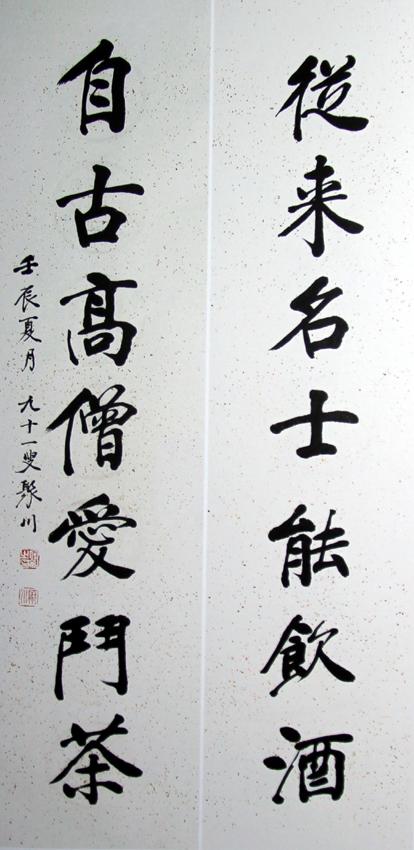 從来名士能飲酒
自古髙僧愛鬥茶
壬辰夏月 九十一叟聚川